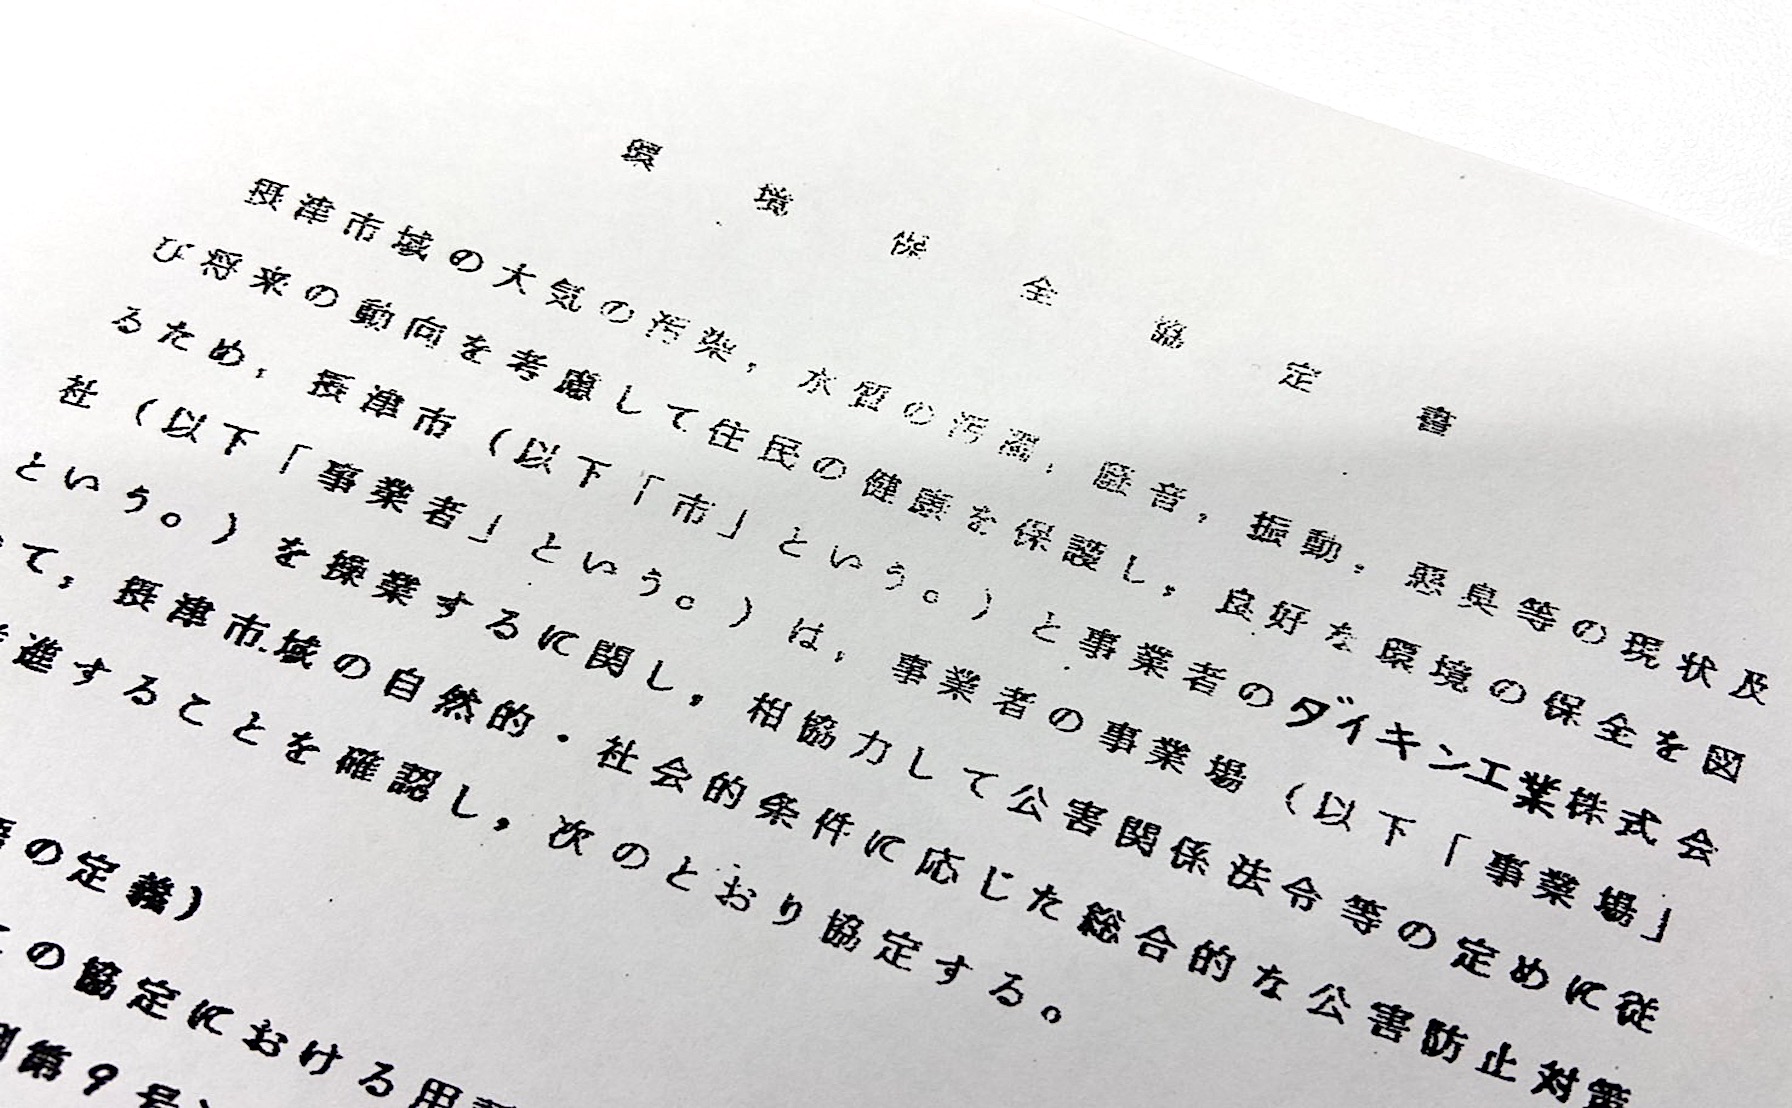 環境保全協定書
摂津市域の大気の汚染，水質の汚濁，騒音，振動，悪臭等の現状及
び将来の動向を考慮して住民の健康を保護し，良好な環境の保全を図
るため，摂津市（以下「市」という。）と事業者のダイキン工業株式会
社（以下「事業者」という。）は，事業者の事業場（以下「事業場」
という。）を操業するに関し，相協力して公害関係法令等の定めに従
て，摂津市域の自然的・社会的条件に応じた総合的な公害防止対策
進することを確認し，次のとおり協定する。
の定義）
の協定における用
第9号